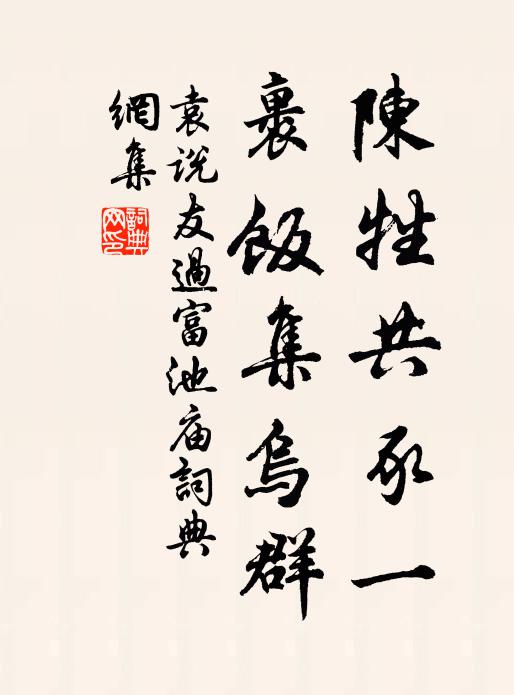 陳牲共豕一
裹飯集烏群
袁説友過富池庙詞典
網集
詞典
网印